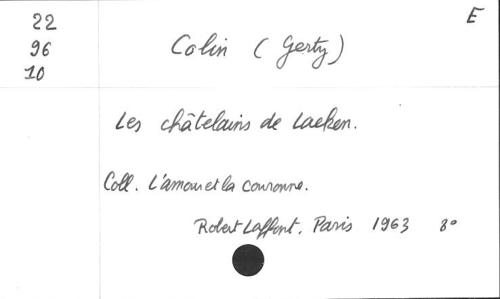 22
96
10
E
Colin (Gerty)
Les châtelains de Laeken.
Coll. L'amour et la couronne.
Robert Laffont. Paris 1963 8°